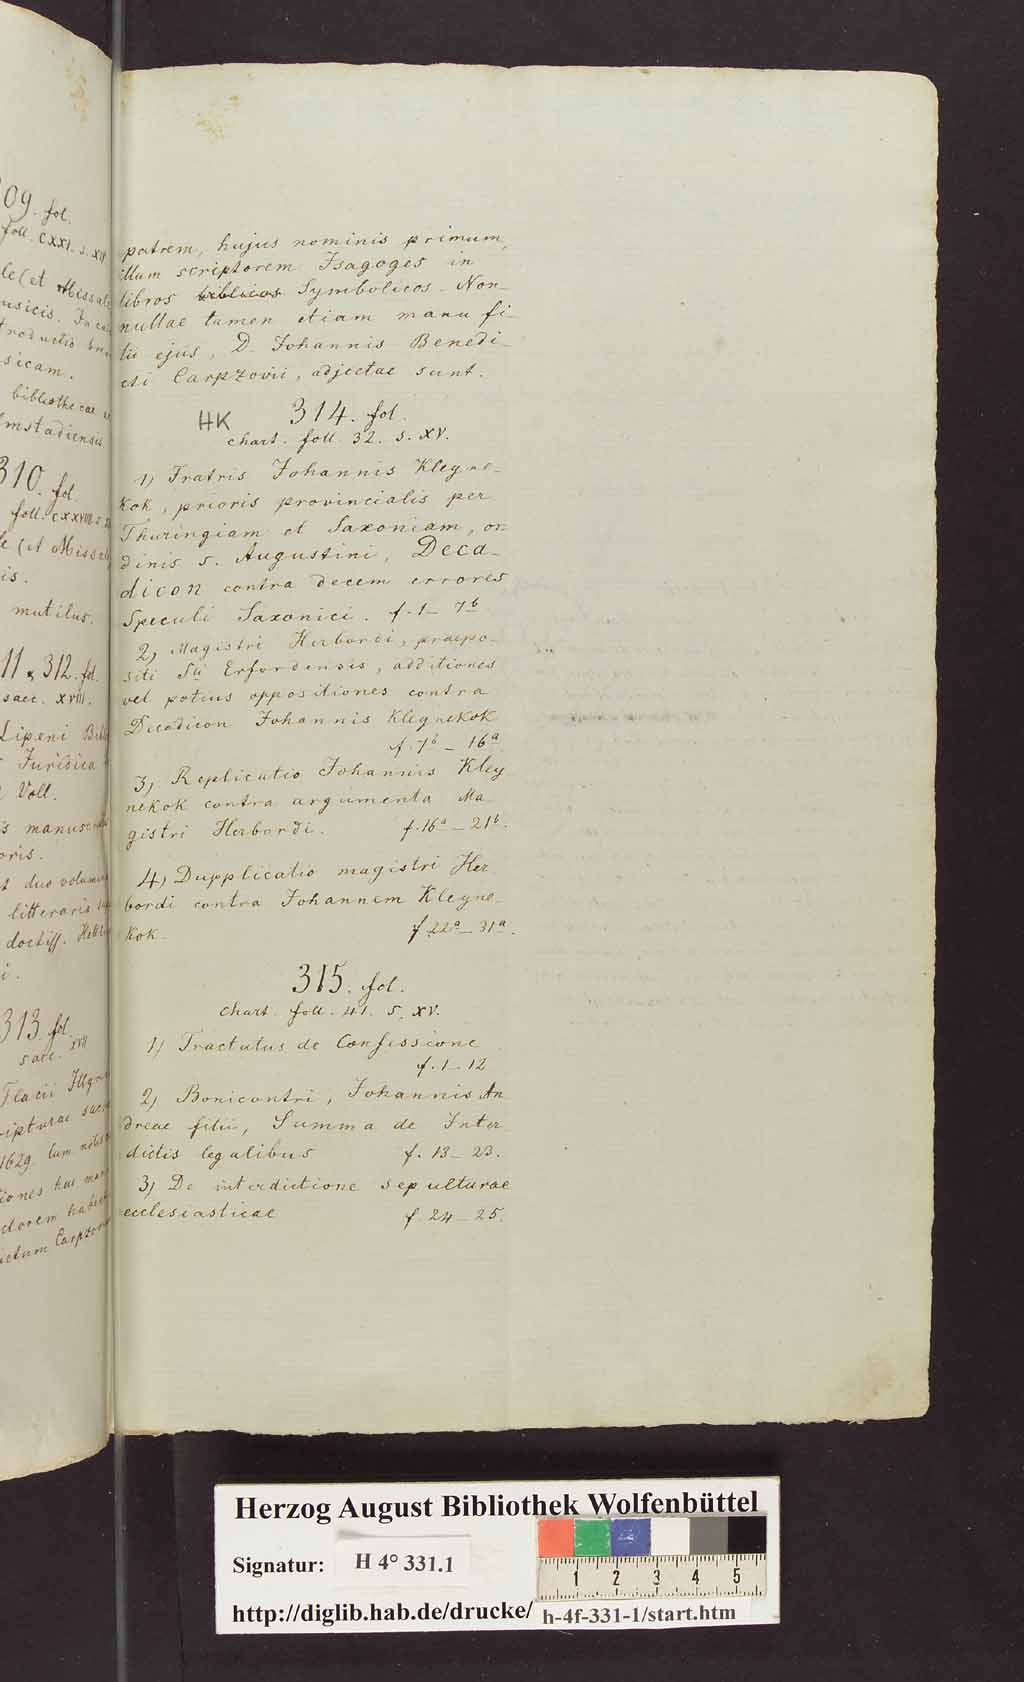 09. fol.
foll. CXXI. s. XV
le (et Missale
usicis. In
troductio
sicam.
bibliothecae
lmstadiensis.
310. fol.
foll. CXXVIII
le (et Missale
is.
mutilus.
11 & 312. fol.
saec. XVIII.
Lipeni
Juridica
Voll.
is manuscr
oris.
t duo volumin
litteraris
doctiss.
i.
313. fol.
saec. XVII
Flacii Illyr
ipturae sac
1629. cum
iones has
ctorem
ictum Carpzov
patrem, hujus nominis primum,
illum scriptorem Isagoges in
libros biblicos Symbolicos. Non-
nullae tamen etiam manu fi-
lii ejus, D. Johannis Benedi-
cti Carpzovii, adjectae sunt.
HK 314. fol.
chart. foll. 32. s. XV.
1) Fratris Johannis Kleyne-
kok, prioris provincialis per
Thuringiam et Saxoniam, or-
dinis s. Augustini, Deca-
dicon contra decem errores
Speculi Saxonici. f. 1-7b
2) Magistri Herbordi, praepo-
siti Erfordensis, additiones
vel potius oppositiones contra
Decadicon Johannis Kleynekok
f. 7b - 16a
3) Replicatio Johannis Kley
nekok contra argumenta Ma-
gistri Herbordi. f. 16a - 21b.
4) Dupplicatio magistri Her
bordi contra Johannem Kleyne-
kok. f 22a - 31a.
315. fol.
chart. foll. 41. s. XV.
1) Tractatus de Confessione
f. 1-12
2) Bonicontri, Johannis An
dreae filii, Summa de Inter
dictis legalibus f. 13-23.
3) De interdictione sepulturae
ecclesiasticae f. 24-25.
Herzog August Bibliothek Wolfenbüttel
Signatur: H 4° 331.1
http://diglib.hab.de/drucke/ h-4f-331-1/start.htm
1 2 3 4 5